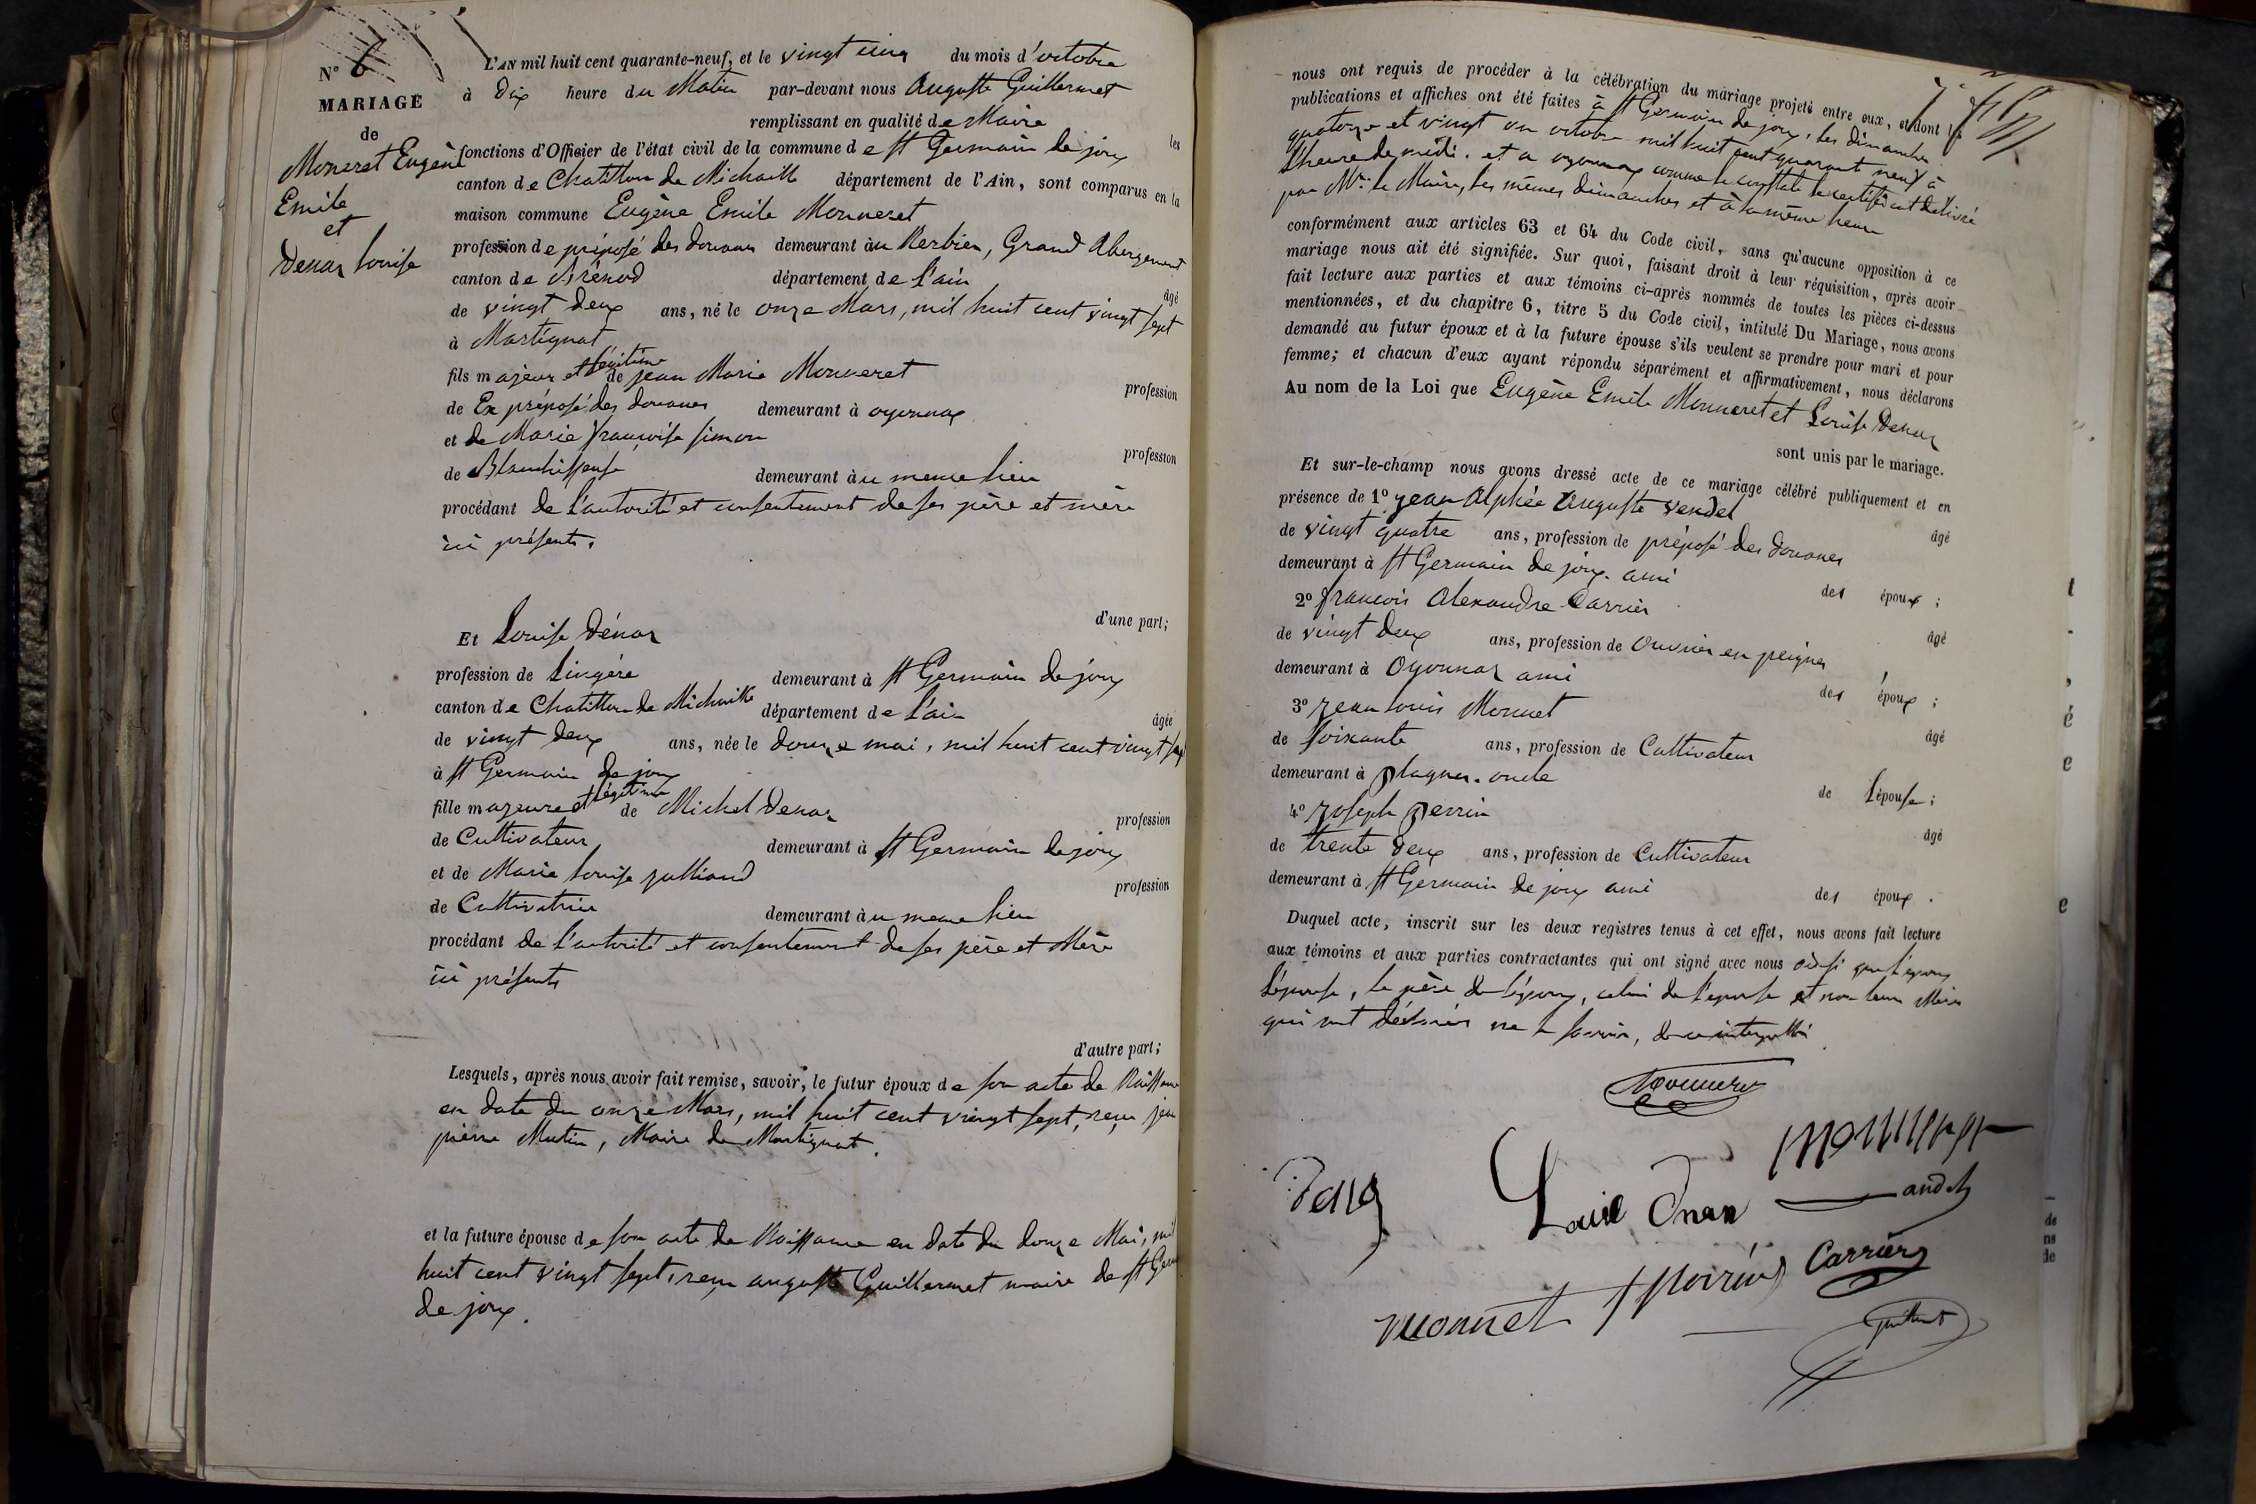 N° 6
MARIAGE
de
Moneret Eugène
Emile
et
Denar Louise
L'AN mil huit cent quarante-neuf, et le vingt cinq du mois d'octobre
à dix heure du Matin par-devant nous Auguste Guillermet
remplissant en qualité de Maire les
fonctions d'Officier de l'état civil de la commune de St Germain de joux
canton de Chatillon de Michaille département de l'Ain, sont comparus en la
maison commune Eugène Emile Monneret
profession de préposé des douanes demeurant au Kerbien, Grand Abergement
canton de Brénod département de l'ain
âgé
de vingt deux ans, né le onze Mars, mil huit cent vingt sept
à Martignat
fils majeur et légitime de jean Marie Monneret
profession
de Ex préposé des douanes demeurant à oyonnax
et de Marie françoise simon
profession
de Blanchisseuse demeurant au meme lieu
procédant de l'autorité et consentement de ses père et mère
ici présents.
d'une part;
Et Louise Dénar
profession de Lingère demeurant à St Germain de joux
canton de Chatillon de Michaille département de l'ain
âgée
de vingt deux ans, née le douze mai, mil huit cent vingt sept
à St Germain de joux
fille majeure et légitime de Michel Denar
profession
de Cultivateur demeurant à St Germain de joux
et de Marie Louise julliand
profession
de Cultivatrice demeurant au meme lieu
procédant de l'autorité et consentement de ses père et Mère
ici présents
d'autre part;
Lesquels, après nous avoir fait remise, savoir, le futur époux de son acte de Naissance
en date du onze Mars, mil huit cent vingt sept, reçu jean
pierre Mutin, Maire de Martignat.
et la future épouse de son acte de Naissance en date du douze Mai, mil
huit cent vingt sept, reçu auguste Guillermet maire de St Germ
de joux.
nous ont requis de procéder à la célébration du mariage projeté entre eux, et dont les
publications et affiches ont été faites à St Germain de joux, les dimanches
quatorze et vingt un octobre mil huit cent quarant neuf à
l'heure de midi. et a oyonnax comme le constate le certificat délivré
par Mr. le Maire, les mêmes dimanches et à la même heure
conformément aux articles 63 et 64 du Code civil, sans qu'aucune opposition à ce
mariage nous ait été signifiée. Sur quoi, faisant droit à leur réquisition, après avoir
fait lecture aux parties et aux témoins ci-après nommés de toutes les pièces ci-dessus
mentionnées, et du chapitre 6, titre 5 du Code civil, intitulé Du Mariage, nous avons
demandé au futur époux et à la future épouse s'ils veulent se prendre pour mari et pour
femme; et chacun d'eux ayant répondu séparément et affirmativement, nous déclarons
Au nom de la Loi que Eugène Emile Monneret et Louise Denar
sont unis par le mariage.
Et sur-le-champ nous avons dressé acte de ce mariage célébré publiquement et en
présence de 1° jean Alphée Auguste Vendel
âgé
de vingt quatre ans, profession de préposé des douanes
demeurant à St Germain de joux. ami des époux;
2° françois Alexandre Carrier
âgé
de vingt deux ans, profession de Ouvrier en peignes
demeurant à Oyonnax ami des époux;
3° jean Louis Monnet
âgé
de soixante ans, profession de Cultivateur
demeurant à plagnes. oncle de l'épouse;
4° joseph perrin
âgé
de trente deux ans, profession de Cultivateur
demeurant à St Germain de joux ami des époux.
Duquel acte, inscrit sur les deux registres tenus à cet effet, nous avons fait lecture
aux témoins et aux parties contractantes qui ont signé avec nous ainsi que l'époux
l'épouse, le père de l'époux, celui de l'épouse et non leurs Mères
qui ont déclarés ne le savoir, de ce interpellé
Monneret
Louise Dnar
Carrier
monnet
Guillermet